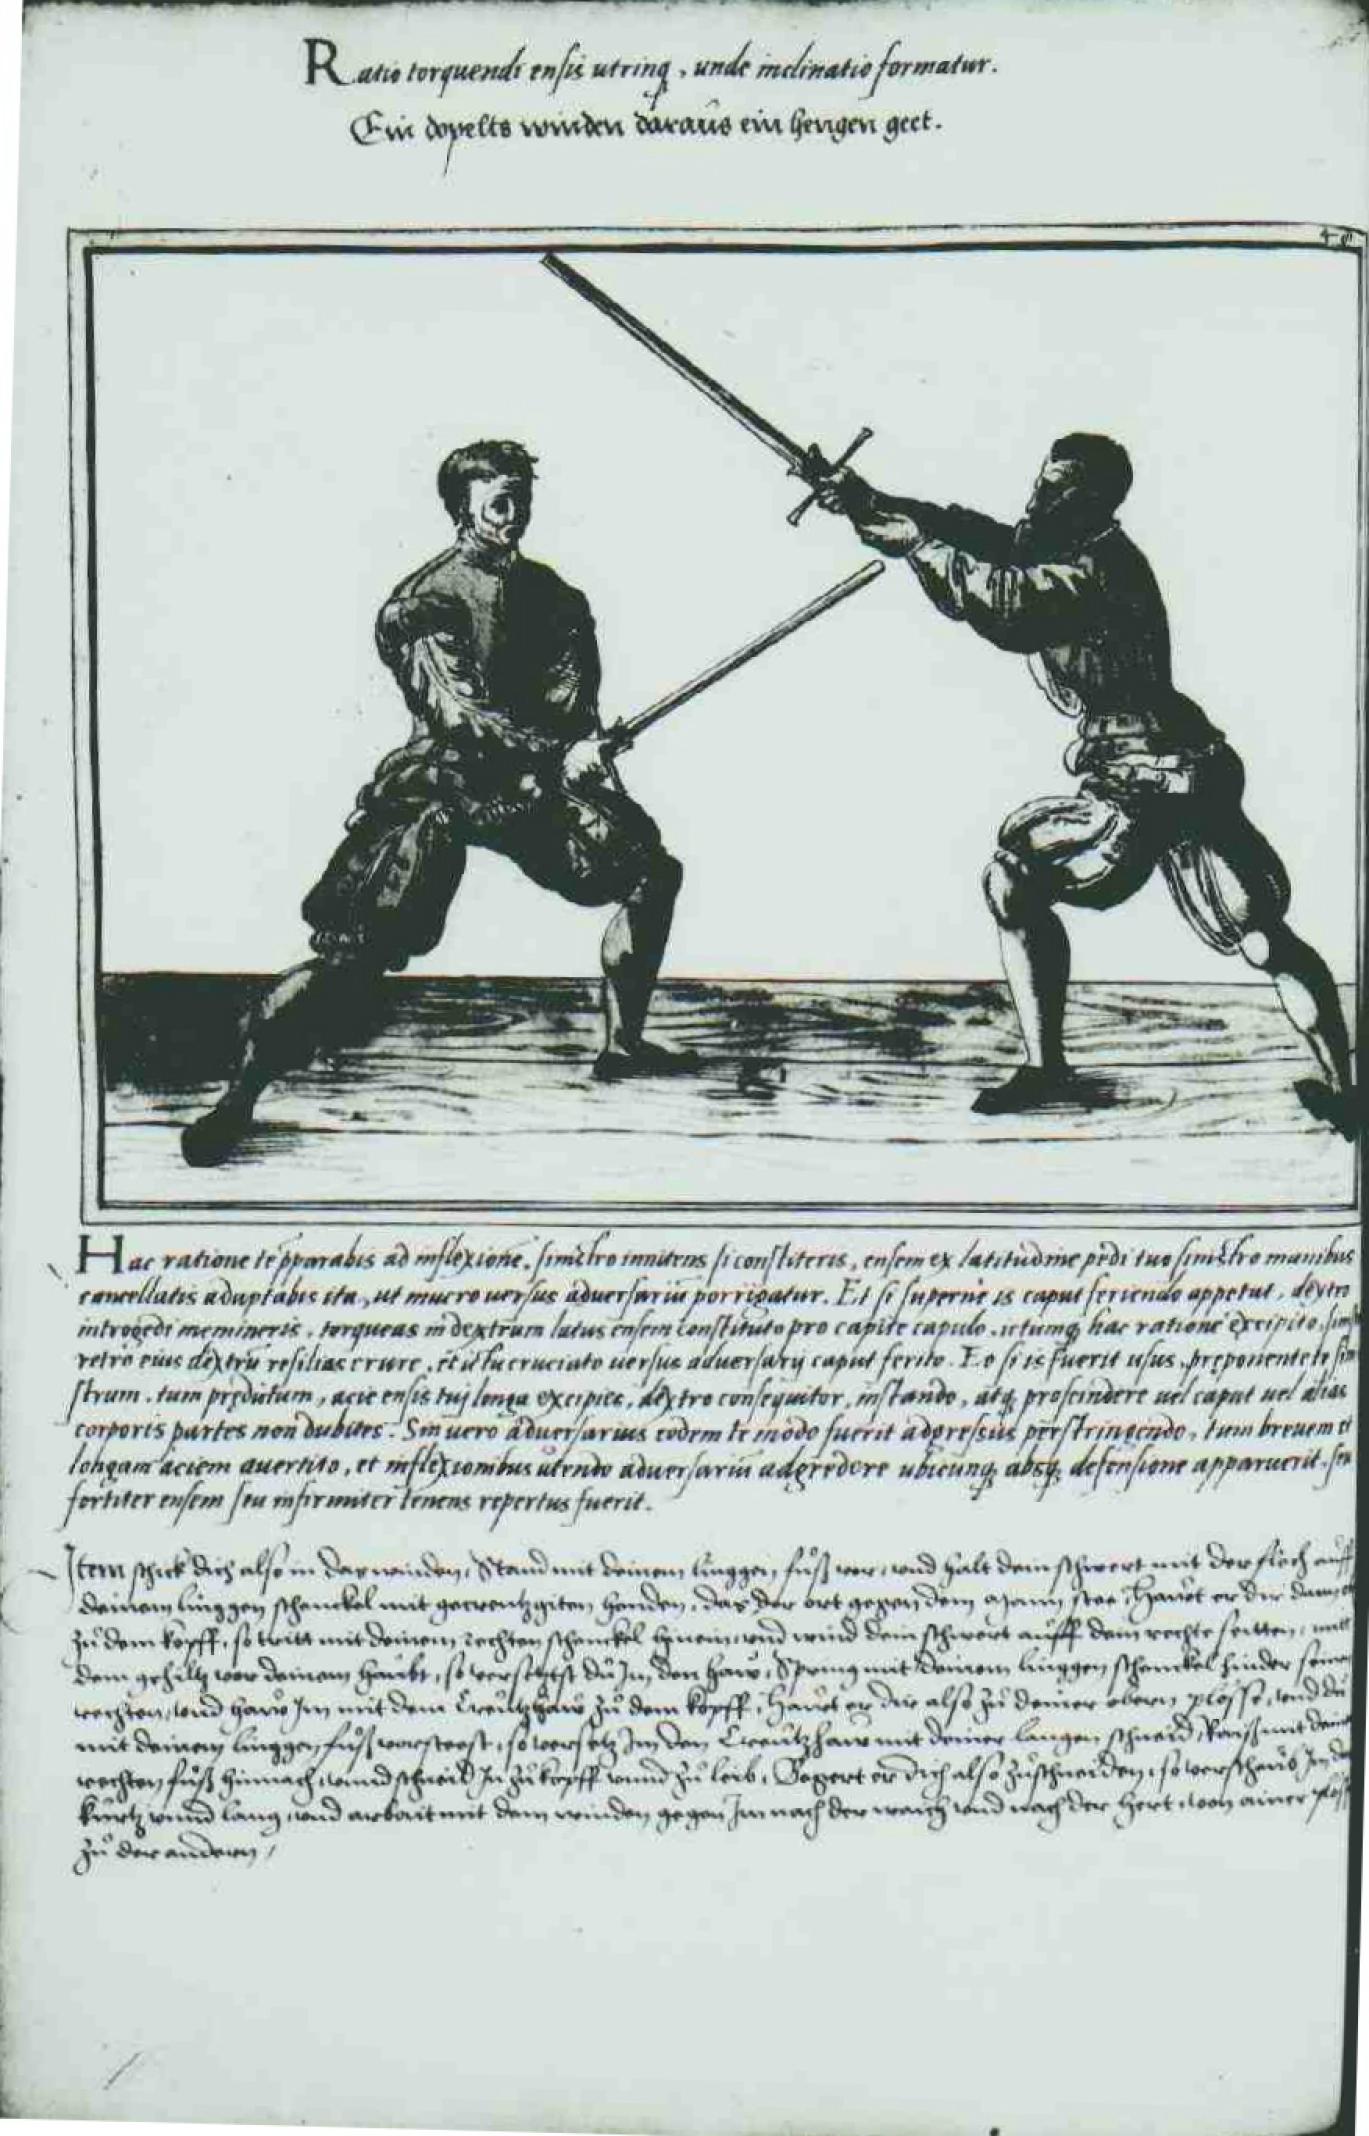 Ratio torquendi ensis utrinq, unde inclinatio formatur.
Ein dopelts winden daraus ein hengen geet.
48
Hac ratione te pparabis ad inflexione. sinistro innitens si constiteris, ensem ex latitudine pedi tuo sinistro manibus
cancellatis aduptabis ita, ut mucro uersus aduersariu porrigatur. Et si superne is caput feriendo appetat, dextro
introgredi memineris, torqueas in dextrum latus ensem constituto pro capite capulo, ictumq hac ratione excipito,
retro eius dextru resilias crure, et cruciato uersus aduersarij caput ferito. Eo si is fuerit usus, preponente te sini
strum, tum predictum, acie ensis tuj longa excipies, dextro consequitor, instando, atq proscindere uel caput uel alias
corporis partes non dubites. Sin uero aduersarius eodem te modo fuerit adgressus perstringendo, tum breuem et
longam aciem auertito, et inflexionibus utendo aduersariu adgredere ubicunq absq defensione apparuerit. seu
fortiter ensem seu infirmiter tenens repertus fuerit.
Item schick dich also in das winden, Stand mit deinem linggen fuß vor, und halt dein schwert mit der flech auff
deinem linggen schenckel mit gecreutzgiten henden, das der ort gegen dem Mann stee, Hawt er dir dann
zu dem kopff, so tritt mit deinem rechten schenckel hinein, und wind dein schwert auff dein rechte seitten, mit
dem gehiltz vor deinem haubt, so versetzst du Im den haw, Spring mit deinem linggen schenckel hinder seinen
rechten, und haw Im mit dem Creutzhaw zu dem kopff, Hawt er dir also zu deiner obern plösse, und du
mit deinem linggen fuß vorsteest, so versetz Im den Creutzhaw mit deiner langen schneid, Raiß mit deinem
rechten fuß hinnach, unnd schneid In zu kopff unnd zu leib, Begert er dich also zuschneiden, so verscheub Im
kurtz unnd lang, und arbait mit dem winden gegen Im nach der waich und nach der hert, von ainer plöß
zu der andern,